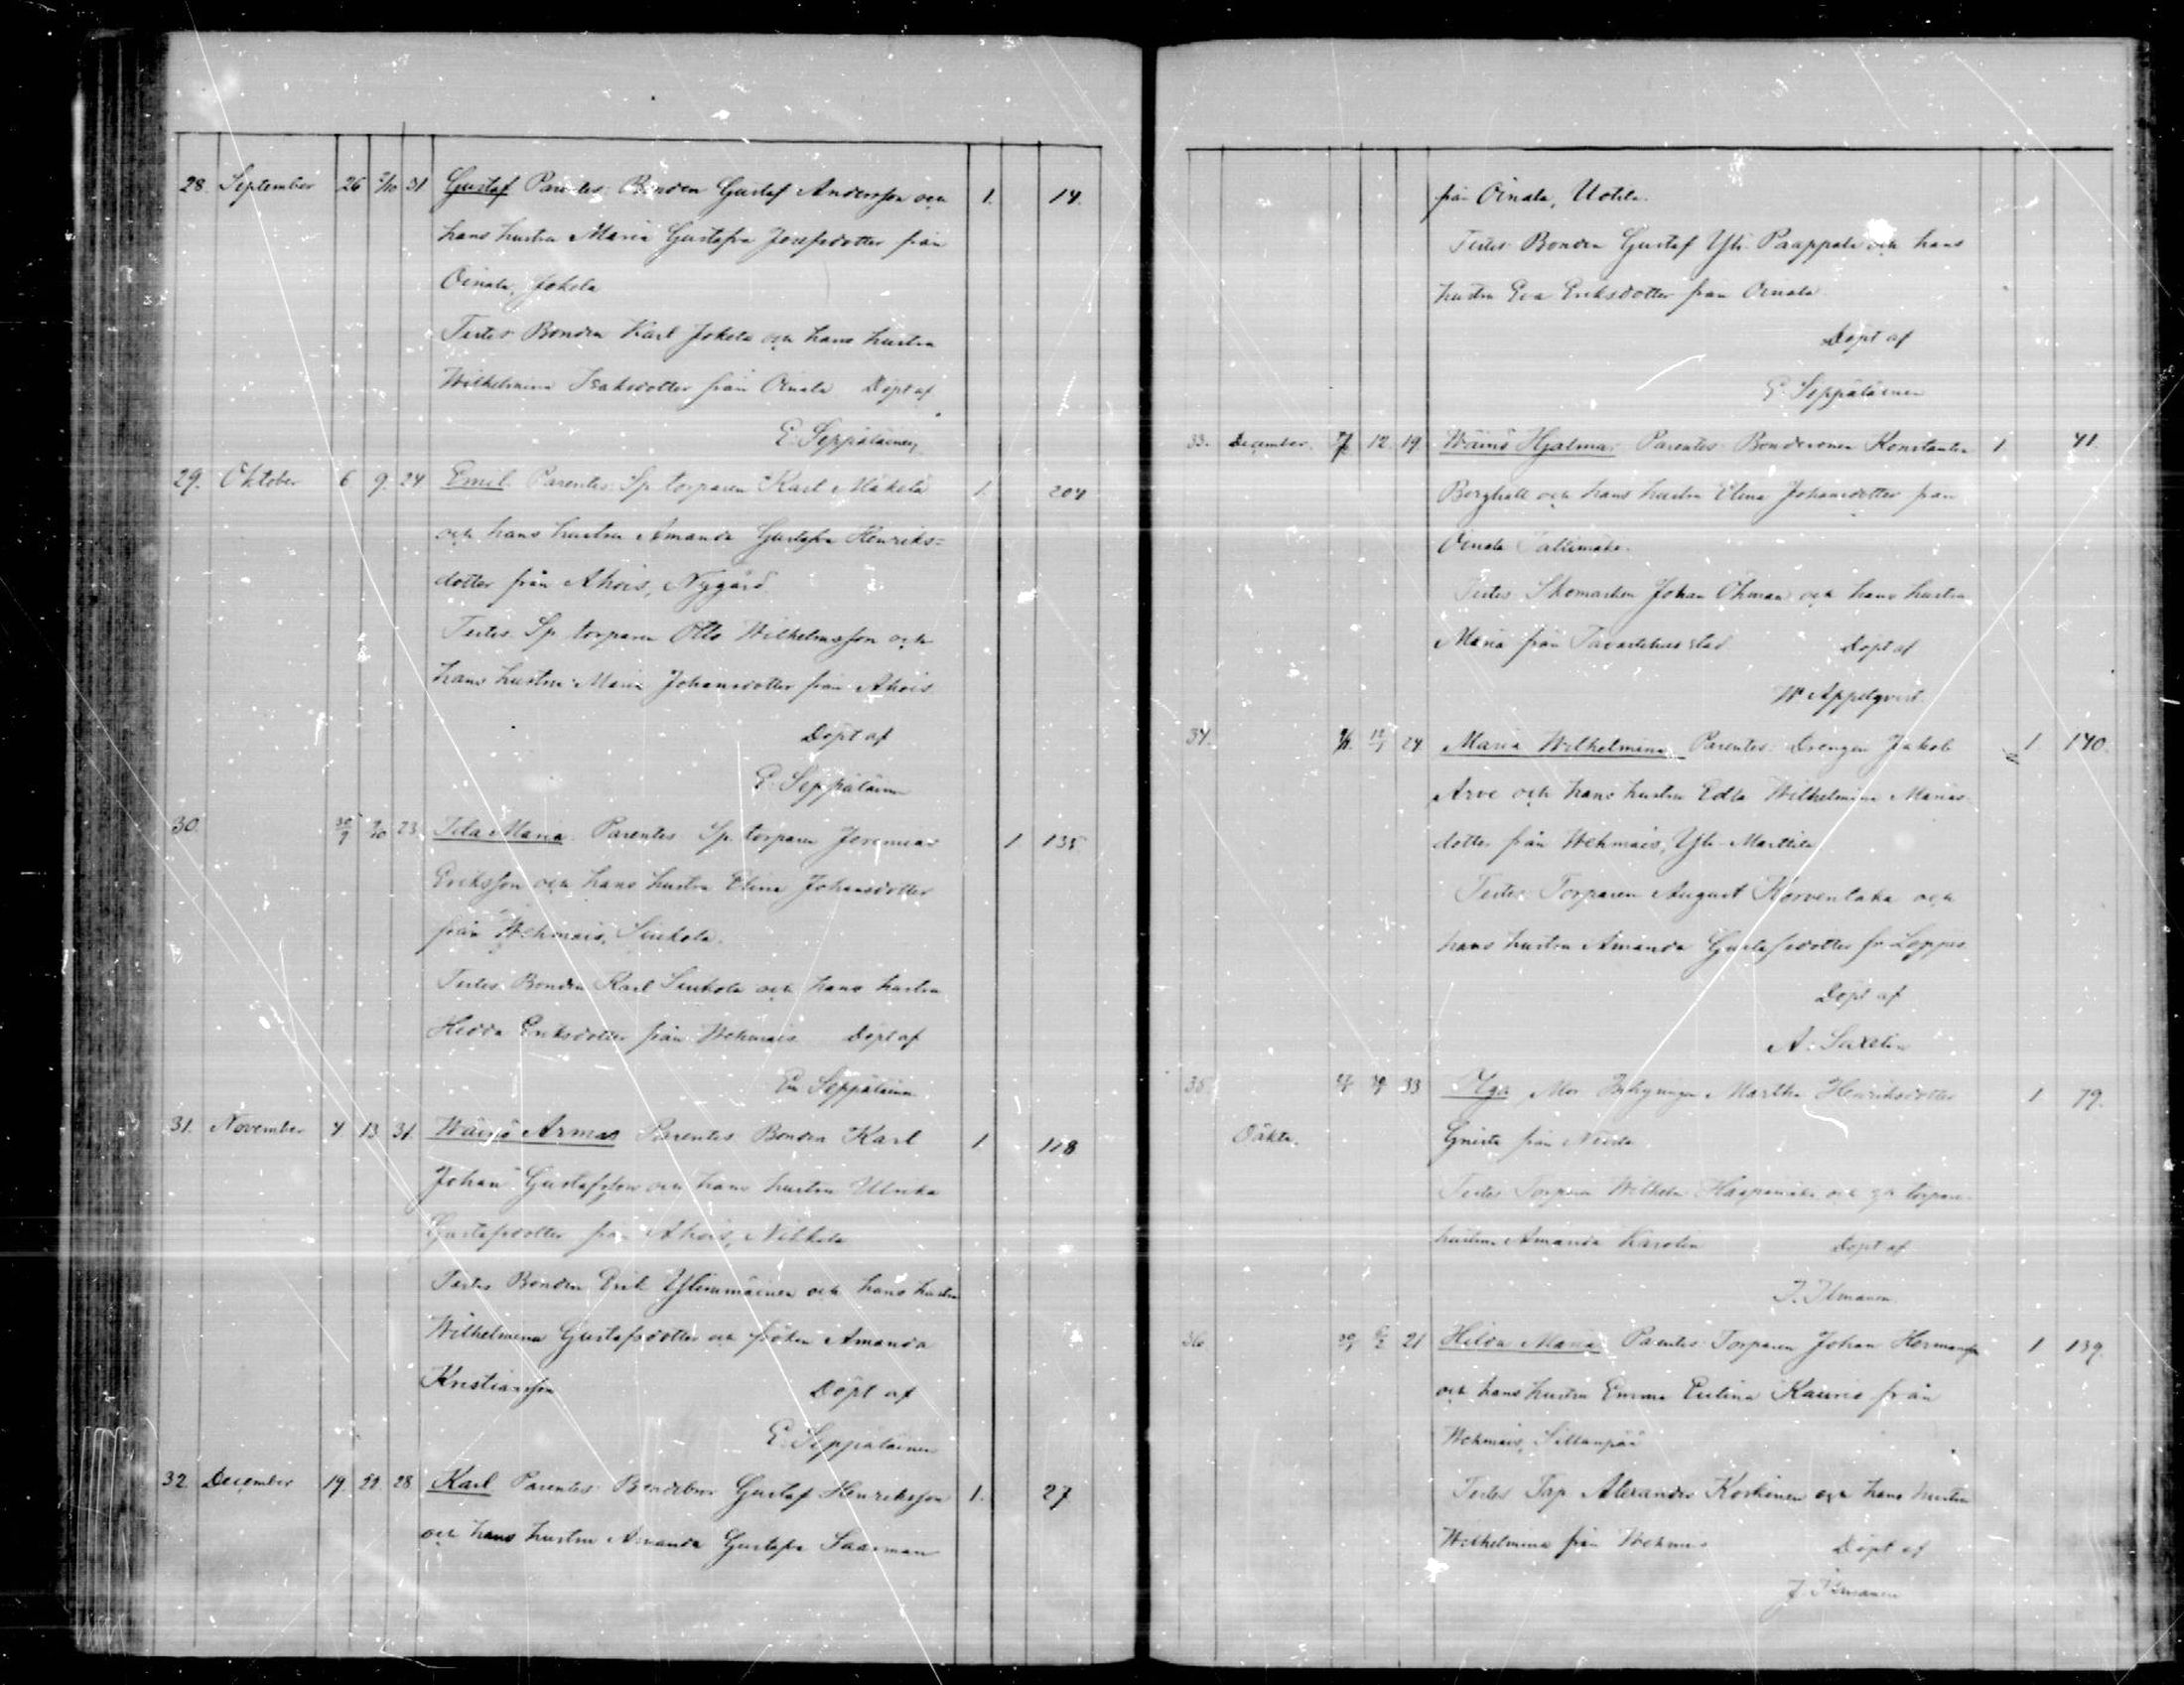 28. September 26 2/10 31 Gustaf Parentes: Bonden Gustaf Andersson och 1. 14.
hans hustru Maria Gustafva Josefsdotter från
Oinala, Jokela
Testes Bonden Karl Jokela och hans hustru
Wilhelmina Isaksdotter från Oinala Döpt af
E. Seppäläinen
29. Oktober 6 9. 24 Emil. Parentes: Sp. torparen Karl Mäkelä 1. 204
och hans hustru Amanda Gustafva Henriks=
dotter från Ahois, Nygård
Testes. Sp. torparen Otto Wilhelmsson och
hans hustru Maria Johansdotter från Ahois
Döpt af
E. Seppäläinen
30. 30/9 /10 23 Maria. Parentes Sp. torparen Jeremias 1 135
Eriksson och hans hustru Elina Johansdotter
från Wehmais, Siukola.
Testes. Bonden Karl Siukola och hans hustru
Hedda Eriksdotter från Wehmais Döpt af
Seppäläinen
31. November 4 13 31. Wäinö Armas Parentes Bonden Karl 1. 118
Johan Gustafsson och hans hustru Ulrika
Gustafsdotter från Ahois, Nikkilä
Testes Bonden Erik Yliemmäinen och hans hustru
Wilhelmina Gustafsdotter och fröken Amanda
Kristiansson Döpt af
E. Seppäläinen
32. December 19. 22. 28 Karl Parentes Gustaf Henriksson 1. 27
och hans hustru Amanda Gustafva Saarman
från Oinala, Uotila.
Testes Bonden Gustaf Yli Paappala och hans
hustru Eva Eriksdotter från Oinala
Döpt af
E. Seppäläinen
33. December. 12. 19. Wäinö Hjalmar Parentes Bondesonen Konstantin 1 41.
Berghäll och hans hustru Elina Johansdotter från
Oinala Tallimäki.
Testes Skomakaren Johan Öhman och hans hustru
Maria från Tavastehus stad Döpt af
W Appelqvist.
34. 12/1 24 Maria Wilhelmina Parentes. Drengen Jakob 1 140.
Arve och hans hustru Edla Wilhelmina Marias
dotter från Wehmais, Yli-Marttila
Testes Torparen August Korvenlaka och
hans hustru Amanda Gustafsdotter fr. Loppis
Döpt af
A. Saxelin
35. 33 Mor Martha Henriksdotter 1 79.
Oäkta. från
Testes Torparen Wilhelm Haapamäki och sp. torpare
hustrun Amanda Karolin Döpt af
J. Ilmanen.
36 21 Hilda Maria. Parentes: Torparen Johan Hermansson 1 139.
och hans hustru Emma Eulina Kauris från
Wehmais, Sillanpää
Testes Torp. Alexander Koskinen och hans hustru
Wilhelmina från Wehmais Döpt af
J. Ilmanen